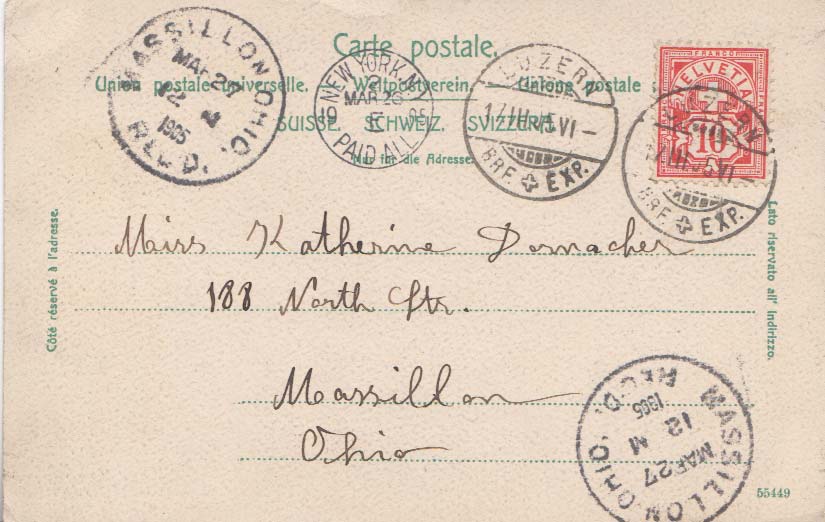 Carte postale.
Union postale universelle. Weltpostverein. Unione postale
SUISSE. SCHWEIZ. SVIZZERA.
Nur für die Adresse.
MASSILLON, OHIO.
MAR 27
12 M
1905
REC'D.
NEW YORK, N.Y.
2
MAR 26
19 E 05
PAID ALL
LUZERN
17.III.05.VI–
BRF. EXP.
FRANCO
HELVETIA
10
LUZERN
VI–
BRF. EXP.
Côté réservé à l'adresse.
Lato riservato all' indirizzo.
Miss Katherine Dornacher
188 North Str.
Massillon
Ohio
MASSILLON, OHIO
MAR 27
12 M
1905
REC'D.
55449